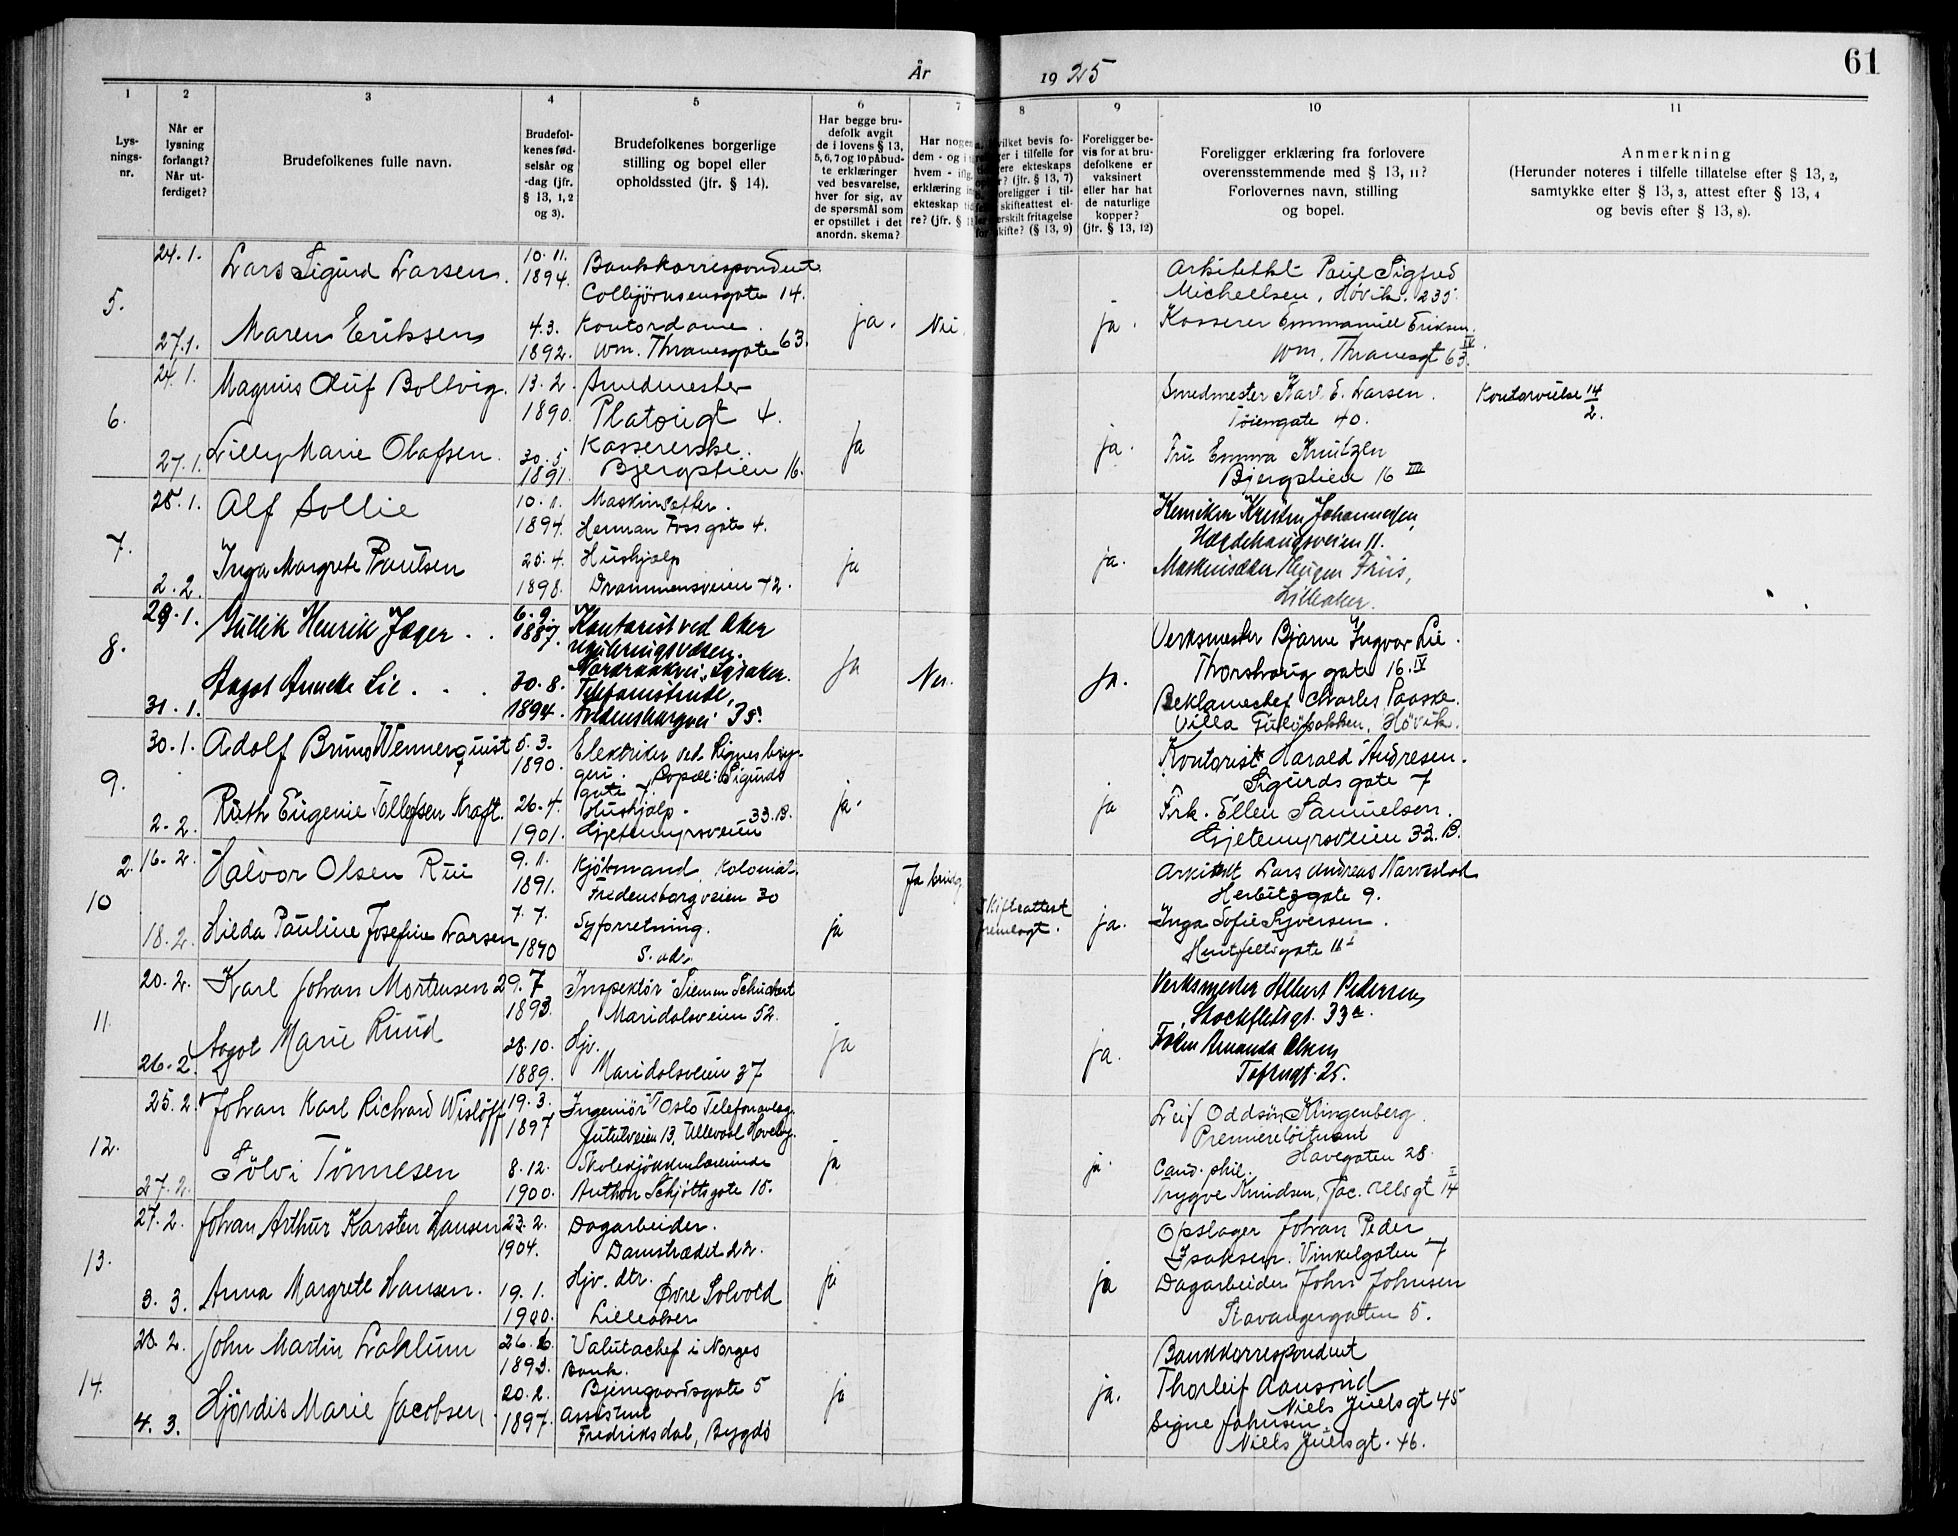 61
År 1925
1 2 3 4 5 6 7 8 9 10 11
Lys-
nings-
nr.
Når er
lysning
forlangt?
Når ut-
ferdiget?
Brudefolkenes fulle navn.
Brudefol-
kenes fød-
selsår og
-dag (jfr.
§ 13, 1, 2
og 3).
Brudefolkenes borgerlige
stilling og bopel eller
opholdssted (jfr. § 14).
Har begge bru-
defolk avgit
de i lovens § 13,
5, 6, 7 og 10 påbud-
te erklæringer
ved besvarelse,
hver for sig, av
de spørsmål som
er opstillet i det
anordn. skema?
Har nogen
dem - og i
hvem - iflg.
erklæring in
ekteskap tid
re? (jfr. §
vilket bevis fo-
er i tilfelle for
ere ekteskaps
r? (jfr. § 13, 7)
oreligger i til-
skifteattest el-
erskilt fritagelse
skifte? (§ 13, 9)
Foreligger be-
vis for at bru-
defolkene er
vaksinert
eller har hat
de naturlige
kopper?
(jfr. § 13, 12)
Foreligger erklæring fra forlovere
overensstemmende med § 13, 11?
Forlovernes navn, stilling
og bopel.
Anmerkning
(Herunder noteres i tilfelle tillatelse efter § 13, 2,
samtykke efter § 13, 3, attest efter § 13, 4
og bevis efter § 13, 8).
5.
24.1.
27.1.
Lars Sigurd Larsen.
Maren Eriksen
10.11.
1894.
4.3.
1892.
Bankkorrespondent
Colbjørnsensgate 14.
Kontordame.
Wm. Thranesgate 63.
ja.
Nei.
ja.
Arkitekt Paul Sigfred
Michelsen, Høvik. 235.
Kasserer Emmanuel Eriksen.
Wm. Thranesgt 63. IV
6.
24.1.
27.1.
Magnus Oluf Bollvig.
Lilly Marie Olafsen.
13.2.
1890.
30.5.
1891.
Smedmester
Platousgt 4.
Kassererske.
Bjergstien 16.
ja
ja.
Smedmester Karl E. Larsen.
Tøiengate 40.
Fru Emma Knutzen
Bjergstien 16 III
Kontorvielse 14/2.
7.
28.1.
2.2.
Alf Sollie
Inga Margrete Paulsen
10.11.
1894.
25.4.
1898.
Maskinsetter.
Herman Fossgate 4.
Hushjælp
Drammensveien 72.
ja
ja.
Kemiker Kristen Johannesen,
Hægdehaugsveien 11.
Maskinsetter Friis,
Lilleaker.
8.
29.1.
31.1.
Gullik Henrik Jæger. .
Aagot Annette Lie. . .
6.9.
1887.
30.8.
1894.
Kontorist ved Aker
reguleringsvæsen.
Nordraakvei, Lysaker.
Telefonistinde,
Fredensborgvei 35.
ja
Nei.
ja.
Verksmester Bjarne Ingvar Lie.
Thorshaug gate 16. IV
Reklamechef Charles Paaske.
Villa Høvik.
9.
30.1.
2.2.
Adolf Bruno Wennerquist
Ruth Eugenie Tollefsen Kraft.
5.3.
1890.
26.4.
1901.
Elektriker ved Rignes bryg-
geri. Bopæl: Sigurds
gate 7.
Hushjælp.
Gjetemyrsveien 33.B.
ja.
ja
Kontorist Harald Andresen.
Sigurds gate 7
Frk. Ellen Samuelsen.
Gjetemyrsveien 33.B.
2.
10
16.2.
18.2.
Halvor Olsen Rui
Hilda Pauline Josefine Larsen
9.11.
1891.
7.7.
1890
Kjøbmand, Kolonial.
Fredensborgveien 30
Syforretning.
S. ads.
ja
Ja
Skifteattest
fremlagt.
ja.
Arkitekt Lars Andreas Narvestad
Herbitzgate 9.
Inga Sofie Syversen.
11.
20.2.
26.2.
Karl Johan Mortensen
Aagot Marie Ruud
29.7
1893.
28.10.
1889.
Inspektør Siemen Schuckert
Maridalsveien 52.
Hjv.
Maridalsveien 37
ja
ja.
Verksmester Albert Pedersen
Stockfletsgt. 33a.
Frøken Amanda Olsen
Toftesgt. 25.
12.
25.2.
27.2.
Johan Karl Richard Wisløff
Sölvi Tönnesen
19.3.
1897
8.12.
1900.
Ingeniør v/Oslo Telefonanlæg.
Jutulveien 13, Ullevaal Haveby.
Skolekjøkkenlærerinde
Anthon Schjøttsgate 15.
ja
ja.
Leif Oddsøn Klingenberg.
Premierløitnant
Havegaten 28.
Cand. phil.
Trygve Knudsen, Jac. Allsgt 14 I
13.
27.2.
3.3.
Johan Arthur Karsten Hansen
Anna Margrete Hansen.
23.2.
1904.
19.1.
1900.
Dagarbeider.
Damstrædet 22.
Hjv. dtr.
Øvre Solvold
Lilleaker
ja
ja
Opslager Johan Peder
Isaksen. Vinkelgaten 7
Dagarbeider John Johnsen
Stavangergaten 5.
14.
28.2.
4.3.
John Martin Laklum
Hjördis Marie Jacobsen.
26.6.
1893.
20.2.
1897.
Valutachef i Norges
Bank.
Bjerregaardsgate 5
Assistent
Fredriksdal, Bygdö
ja
ja.
Bankkorrespondent
Thorleif Aamsrud
Niels Juelsgt 45
Signe Johnsen.
Niels Juelsgt. 46.